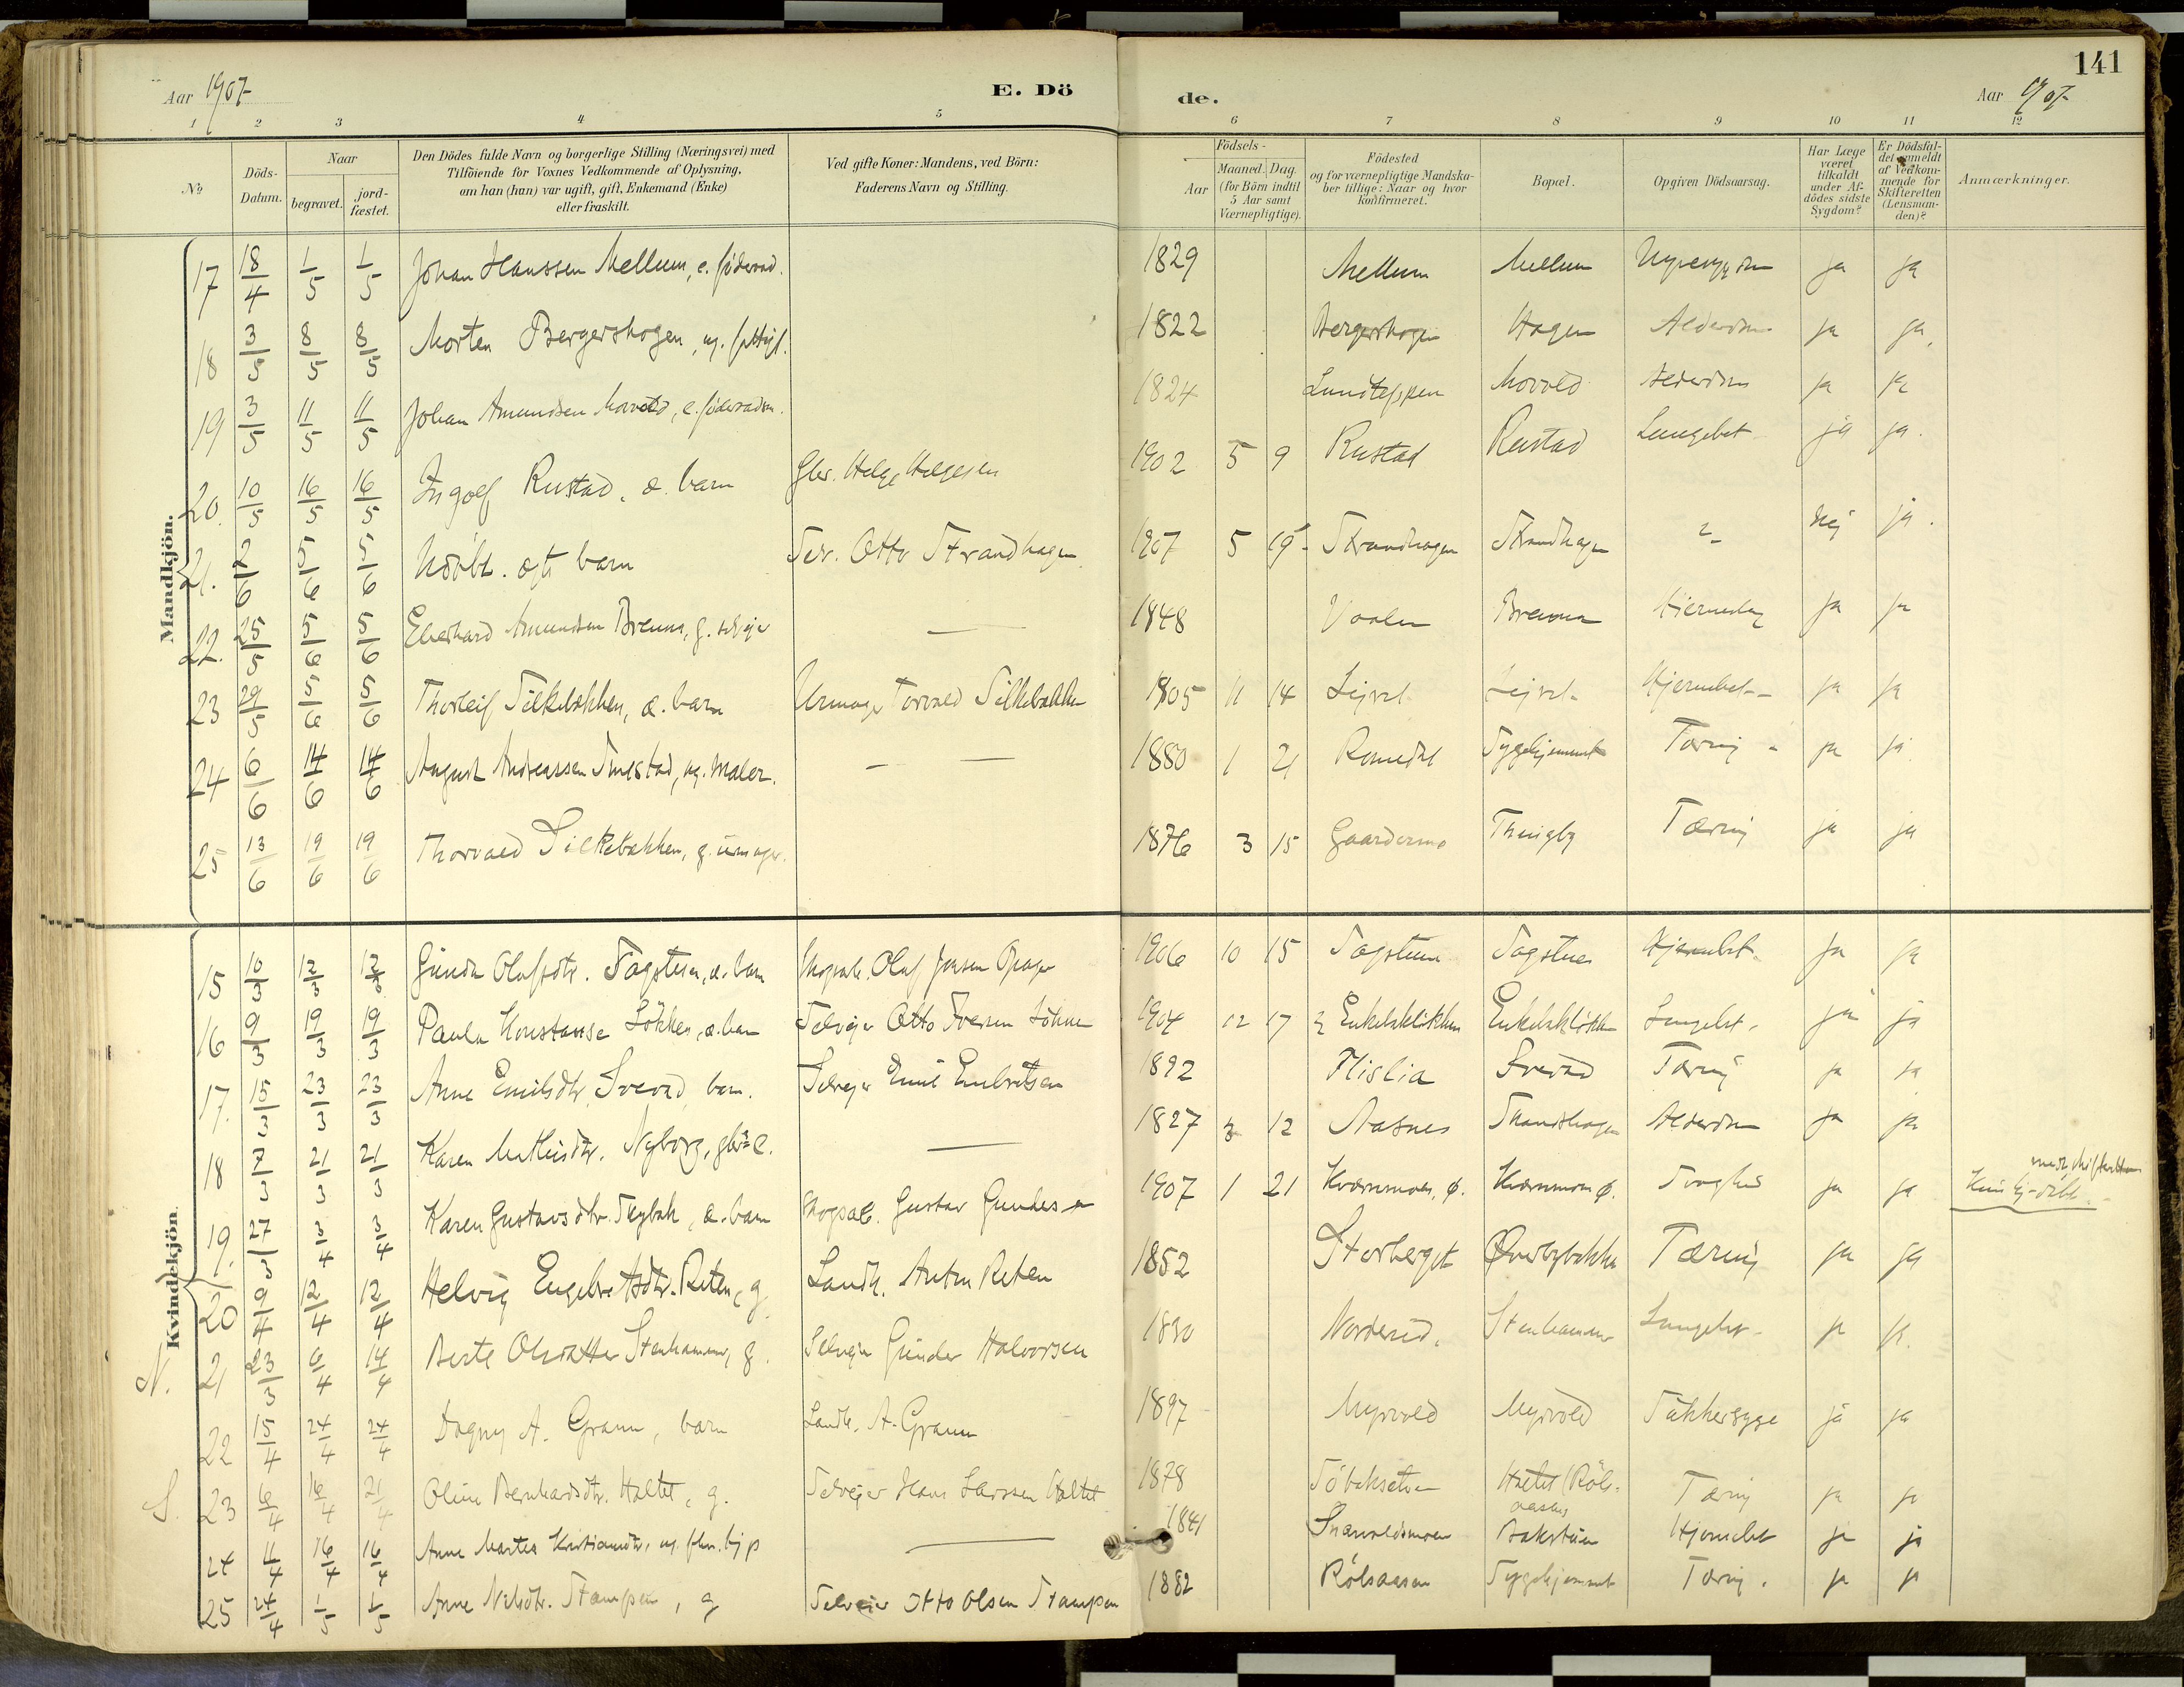 141
Aar 1907
E. Dö
de.
Aar 1907
1 2 3 4 5 6 7 8 9 10 11 12
No
Döds-Datum.
Naar
begravet.
jord-fæstet.
Den Dödes fulde Navn og borgerlige Stilling (Næringsvei) med
Tilföiende for Voxnes Vedkommende af Oplysning,
om han (hun) var ugift, gift, Enkemand (Enke)
eller fraskilt.
Ved gifte Koner: Mandens, ved Börn:
Faderens Navn og Stilling.
Födsels-
Aar
Maaned. Dag.
(for Börn indtil
5 Aar samt
Værnepligtige).
Födested
og for værnepligtige Mandska-
ber tillige: Naar og hvor
konfirmeret.
Bopæl.
Opgiven Dödsaarsag.
Har Læge
været
tilkaldt
under Af-
dödes sidste
Sygdom?
Er Dödsfal-
det anmeldt
af Vedkom-
mende for
Skifteretten
(Lensman-
den)?
Anmærkninger.
Mandkjön.
17 18/4 1/5 1/5 Johan Hanssen Mellum, e. föderaad. 1829 Mellum Mellum ja ja
18 3/5 8/5 8/5 Morten Bergershagen, ug. 1822 Bergershagen Hagen Alderdom ja ja
19 3/5 11/5 11/5 Johan Amundsen Movold, e. föderaadsm. 1824 Movold Alderdom ja ja
20. 10/5 16/5 16/5 Ingolf Rustad, æ. barn Gbr. Helge Helgesen 1902 5 9 Rustad Rustad Lungebet. ja ja.
21. 2/6 5/6 5/6 Udöbt. ægte barn Selv. Otto Strandhagen 1907 5 19 Strandhagen Strandhagen Nej ja.
22. 25/5 5/6 5/6 Eberhard Amundsen Brenna, g. selvejer — 1848 Vaaler Brenna ja ja
23 29/5 5/6 5/6 Thorleif Silkebækken, æ. barn Urmager Torvald Silkebækken 1905 11 14 Lejret Lejret Hjernebet. ja ja
24 6/6 14/6 14/6 August Andreassen Imestad, ug. maler. — — 1880 1 21 Romedal Sygehjemmet Tæring ja ja
25 13/6 19/6 19/6 Thorvald Silkebækken, g. urmager. 1876 3 15 Gaardermo Thingby Tæring ja ja
Kvindekjön.
15 10/3 12/3 12/3 Gunda Olafsdtr. Tagstuen, æ. barn Skogsarb. Olaf Jonsen 1906 10 15 Tagstuen Tagstuen Hjernebet. ja ja
16 9/3 19/3 19/3 Paula Konstanse Løkken, æ. barn Selvejer Otto Iversen 1904 12 17 Enkebakløkken Enkebakløkken Lungebet. ja ja
17. 15/3 23/3 23/3 Anne Emilsdtr. Sverad, barn. Selvejer Emil Embretsen 1892 Flislia Sverad Tæring ja ja
18 7/3 21/3 21/3 Karen Mathisdtr. Nyborg, e. — 1827 3 12 Aasnes Strandhagen Alderdom ja ja
19. 27/3 3/4 3/4 Karen Gustavsdtr. Nybak, æ. barn Skogsarb. Gustav Gundersen 1907 1 21 Kværnmoen, ø. Kværnmoen ø. Svaghed ja ja Kun hj. döbt.
20 9/4 12/4 12/4 Helvig Engebretsdtr. Reten, g. Landh. Anton Reten 1852 Storberget Øverbybakken Tæring ja ja
N. 21 23/3 6/4 14/4 Berte Olsdatter Stenhammer, g. Selvejer Gunder Halvorsen 1830 Norderud. Stenhammer Lungebet. ja ja.
22 15/4 24/4 24/4 Dagny A. Gramm, barn Landh. A. Gramm 1897 Myrvold Myrvold Sukkersyge ja ja
S. 23 6/4 16/4 21/4 Oline Bernhardsdtr. Haltet, g. Selvejer Hans Larssen Haltet 1878 Haltet (Röls-
aasen) Tæring ja ja
24 11/4 16/4 16/4 Anne Martea Kristiansdtr. ug. — 1841 Snarvoldsmoen Bakstuen Hjernebet ja ja
25 24/4 1/5 1/5 Anne Nilsdtr. Stampen, g Selveier Otto Olsen Stampen 1882 Rölsaasen Sygehjemmet Tæring. ja ja